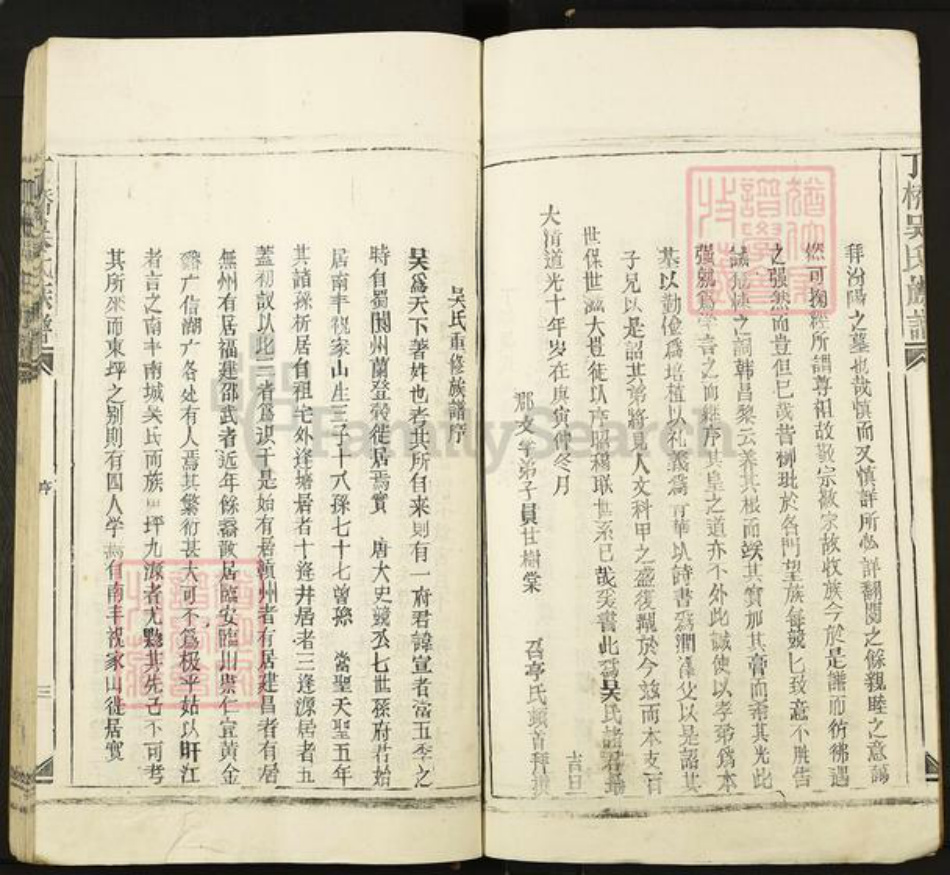 丁橋吳氏族譜
拜汾陽之墓也哉慎而又慎詳所必詳翻閱之餘親睦之意藹
然可掬經所謂尊祖故敬宗敬宗故收族今於是譜而彷彿遇
之强然而豈但已哉昔柳玭於各門望族每兢匕致意不胜告
誡 之詞韓昌黎云養其根而竢其實加其膏而希其光此
强就爲學言之而維序其皇之道亦不外此誠使以孝弟爲本
基以勤儉爲培植以礼義爲菁華以詩書爲潤澤父以是詔其
子兄以是詔其弟將見人文科甲之盛復覩於今兹而本支百
世保世滋大豈徒以序昭穆联世系已哉爰書此爲吳氏諸君
大清道光十年岁在庚寅仲冬月 吉日
郡文学弟子員甘樹棠 召亭氏頓首拜撰
吳氏重修族譜序
吳爲天下著姓也考其所自来则有一府君諱宣者當五季之
時自蜀閬州蘭登 徙居焉實 唐大史兢公七世孫府君始
居南丰祝家山生三子十八孫七十七曾孫 當聖天聖五年
其諸孫析居自祖宅外逢塘居者十逢井居者三逢源居者五
蓋初议以此三者爲识于是始有居 州者有居建昌者有居
無州有居福建邵武者近年餘 散居臨安臨川崇仁宜黄金
谿广信湖广各处有人焉其繁衍甚大可不爲极乎姑以旴江
者言之南丰南城吳氏而族 坪九源者尤 其先古不可考
其所來而東坪之别則有四人学 自南丰祝家山徙居實
序
三
FamilySearch